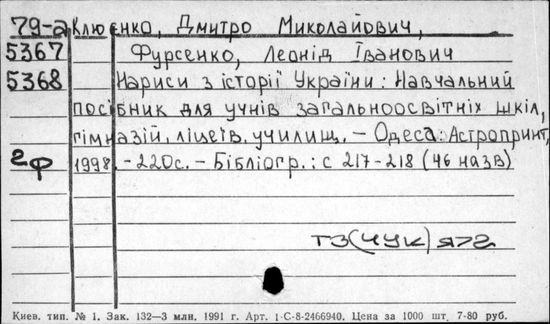 79-а Клюєнко, Дмитро Миколайович,
5367 Фурсенко, Леонід Іванович
5368 Нариси з історії України: Навчальний
посібник для учнів загальноосвітніх шкіл,
гімназій, ліцеїв, училищ. – Одеса: Астропринт,
2ф 1998. – 220с. – Бібліогр.: с 217-218 (46 назв)
ТЗ(4УК)я72
Киев. тип. № 1. Зак. 132—3 млн. 1991 г. Арт. 1-С-8-2466940. Цена за 1000 шт. 7-80 руб.